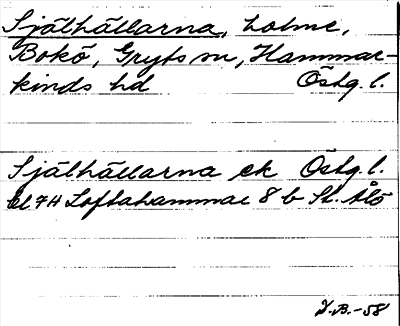 Själhällarna, holme,
Bokö, Gryts sn, Hammar-
kinds hd Östg. l.
Själhällarna ek Östg. l.
bl 7H Loftahammar 8 b St. Ålö
J.B.-58